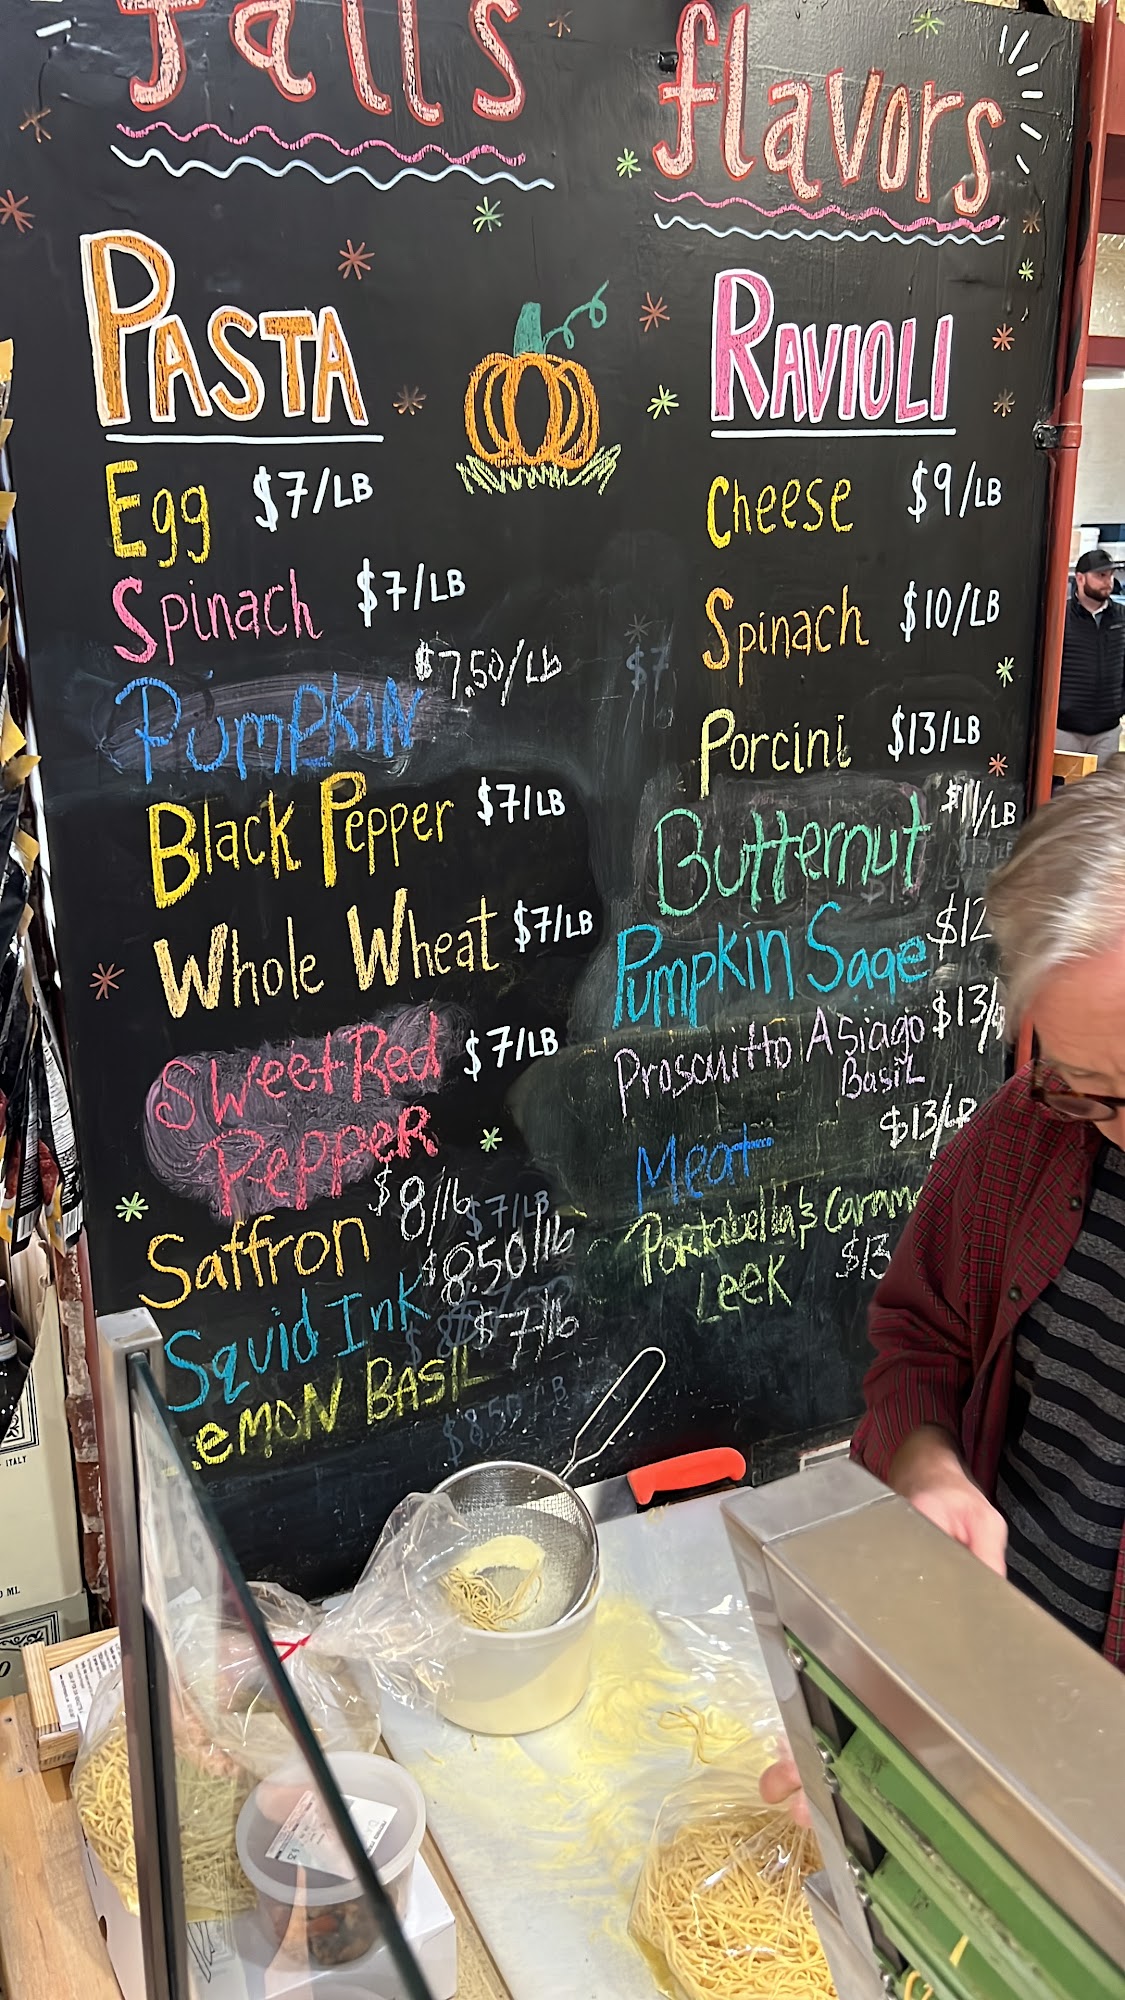 falls
flavors
PASTA
Egg $7/LB
Spinach $7/LB
PUMPKIN $7.50/Lb
Black Pepper $7/LB
Whole Wheat $7/LB
Sweet Red $7/LB
PEPPER
Saffron $8/lb
Squid Ink $8.50/lb
eMON BASIL $7/lb
RAVIOLI
Cheese $9/LB
Spinach $10/LB
Porcini $13/LB
Butternut $11/LB
Pumpkin Sage $12
Proscuitto Asiago $13/LB
Basil
Meat $13/LB
Portabella & Caram
Leek $13
$7
$7/LB
$8.50/LB
ITALY
ML